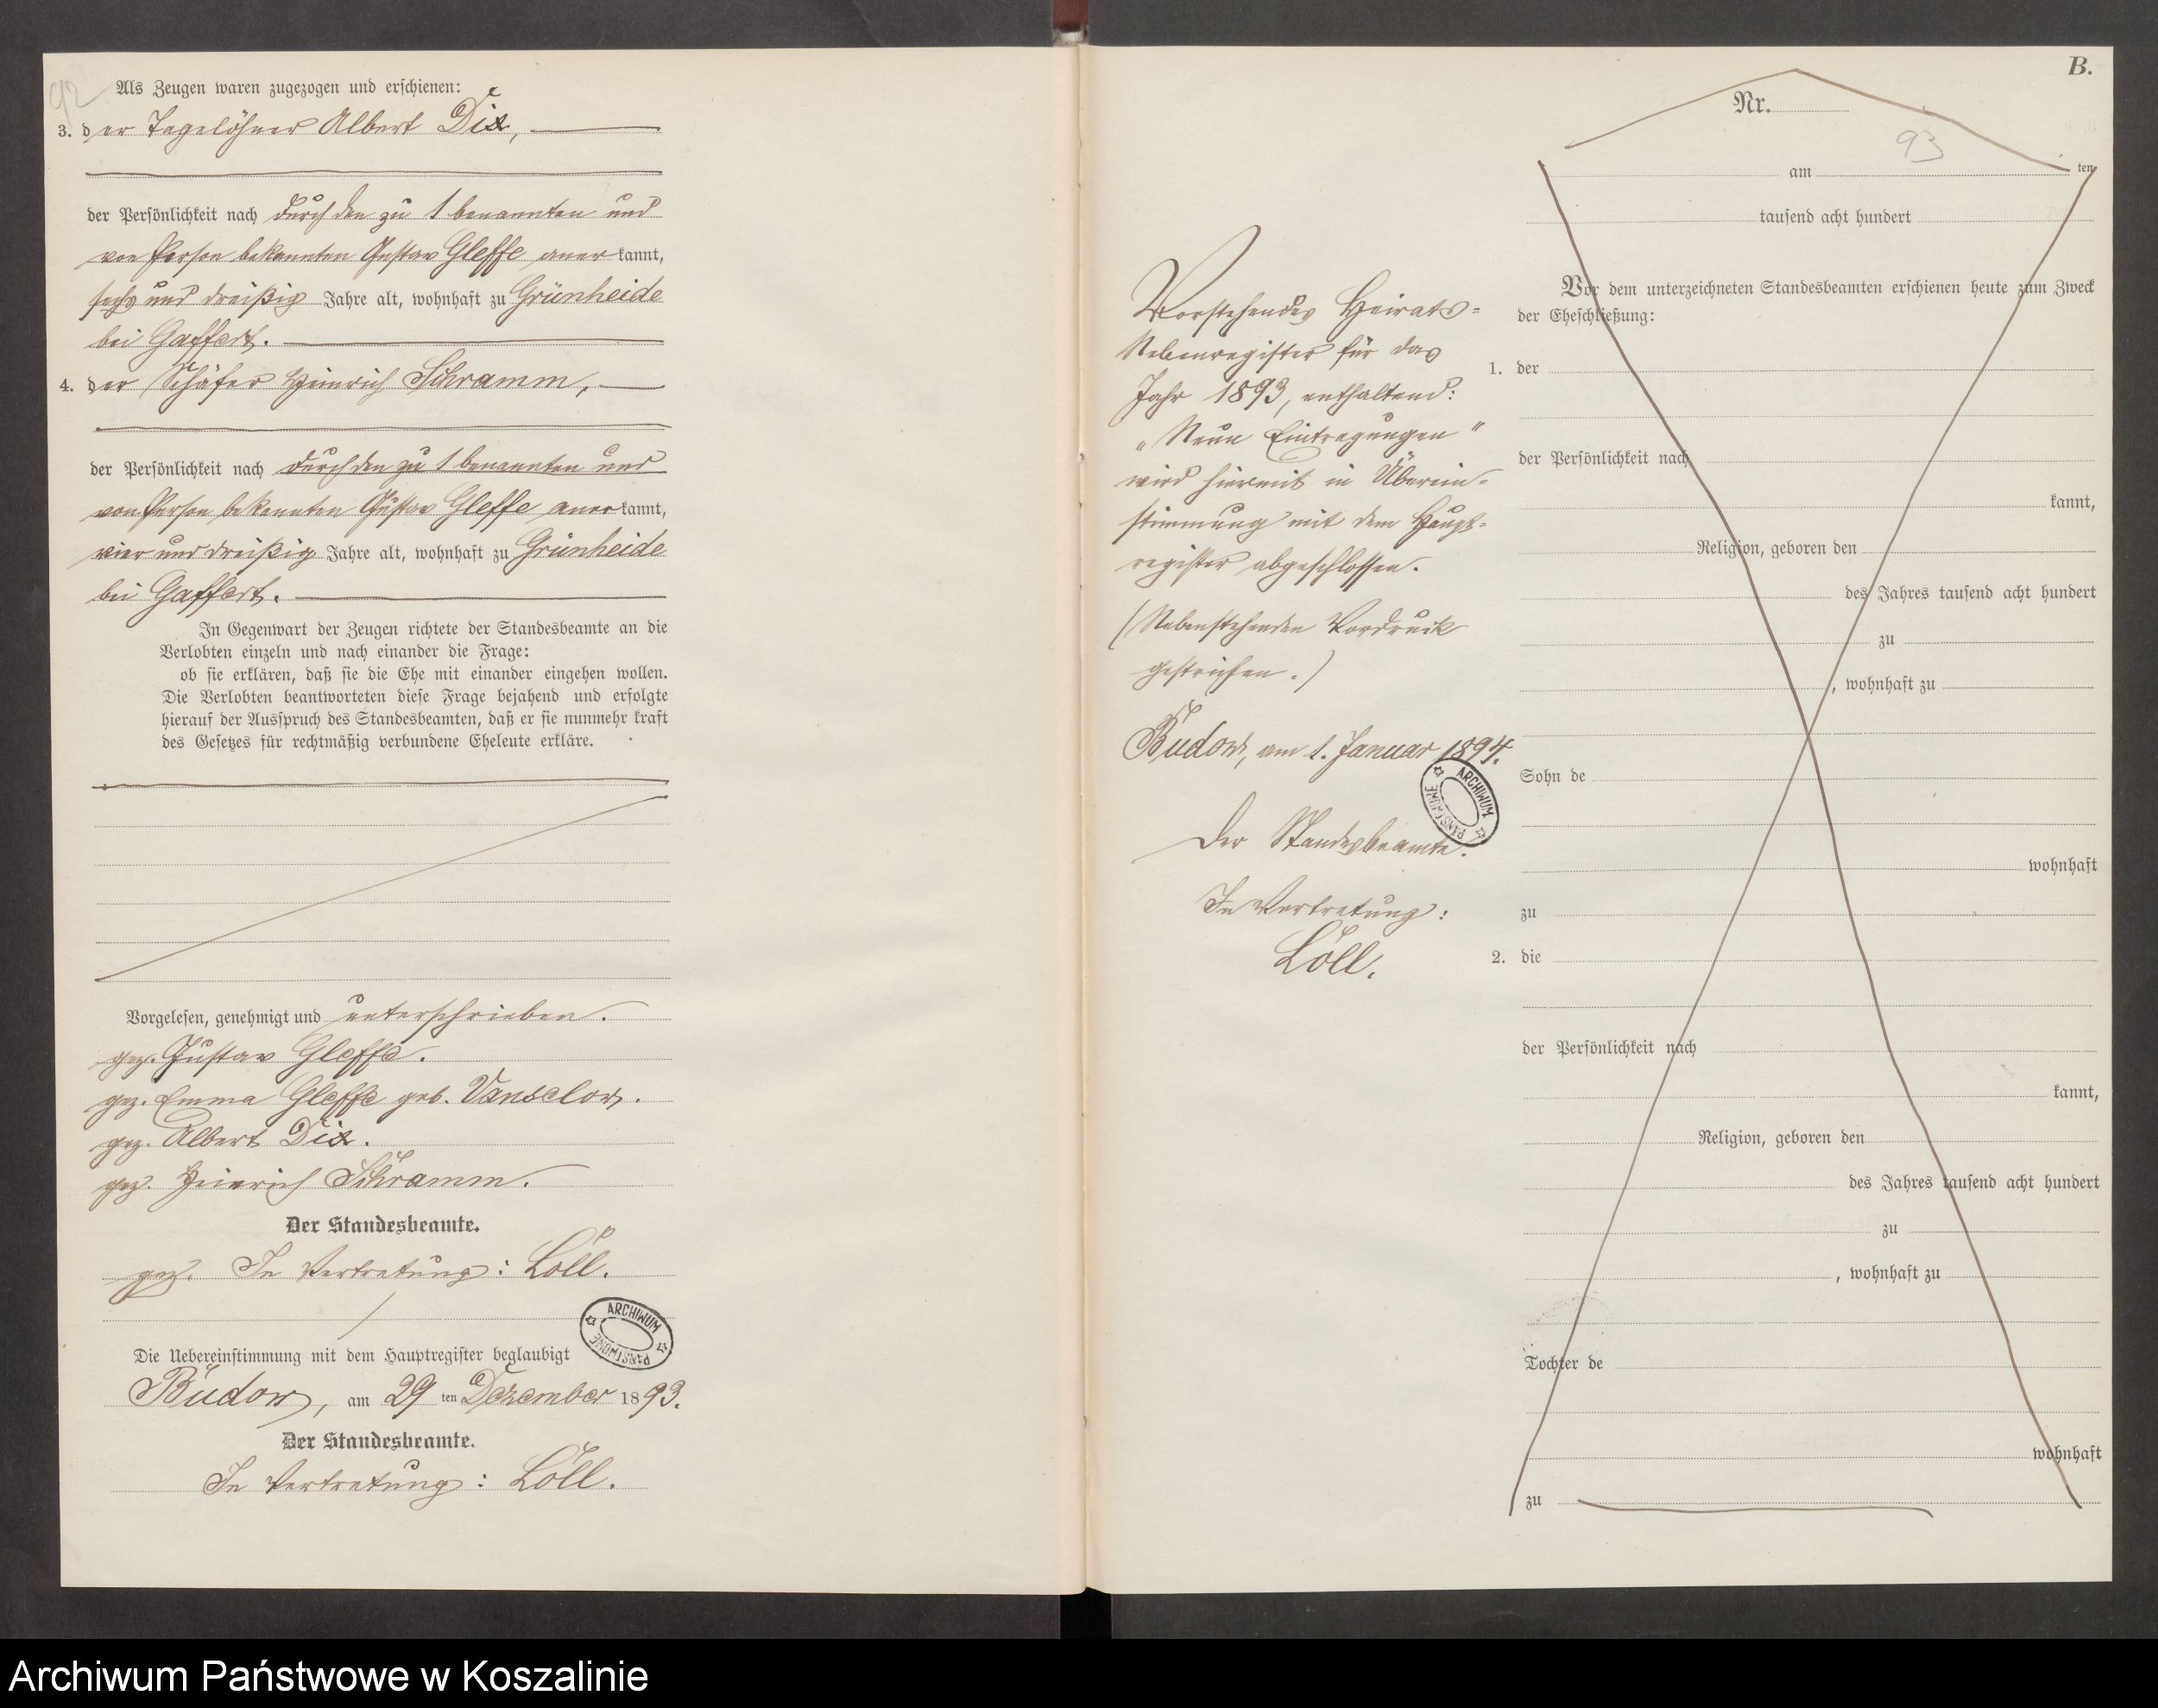 92
Als Zeugen waren zugezogen und erschienen:
3. der Tagelöhner Albert Dix,
der Persönlichkeit nach durch den zu 1 benannten und
von Person bekannten Gustav Gleffe anerkannt,
sechs und dreißig Jahre alt, wohnhaft zu Grünheide
bei Gaffert.
4. der Schäfer Heinrich Schramm,
der Persönlichkeit nach durch den zu 1 benannten und
von Person bekannten Gustav Gleffe anerkannt,
vier und dreißig Jahre alt, wohnhaft zu Grünheide
bei Gaffert.
In Gegenwart der Zeugen richtete der Standesbeamte an die
Verlobten einzeln und nach einander die Frage:
ob sie erklären, daß sie die Ehe mit einander eingehen wollen.
Die Verlobten beantworteten diese Frage bejahend und erfolgte
hierauf der Ausspruch des Standesbeamten, daß er sie nunmehr kraft
des Gesetzes für rechtmäßig verbundene Eheleute erkläre.
Vorgelesen, genehmigt und unterschrieben.
gez. Gustav Gleffe.
gez. Emma Gleffe geb. Vanselow.
gez. Albert Dix.
gez. Heinrich Schramm.
Der Standesbeamte.
gez. In Vertretung: Löll.
ARCHIWUM PAŃSTWOWE
Die Uebereinstimmung mit dem Hauptregister beglaubigt
Budow, am 29 ten Dezember 1893.
Der Standesbeamte.
In Vertretung: Löll.
Vorstehendes Heirats-
Nebenregister für das
Jahr 1893, enthaltend:
„Neun Eintragungen"
wird hiermit in Überein-
stimmung mit dem Haupt-
register abgeschlossen.
(Nebenstehenden Vordruck
gestrichen.)
Budow, am 1. Januar 1894.
ARCHIWUM PAŃSTWOWE
Der Standesbeamte.
In Vertretung:
Löll.
B.
Nr.
93
am ten
tausend acht hundert
Vor dem unterzeichneten Standesbeamten erschienen heute zum Zweck
der Eheschließung:
1. der
der Persönlichkeit nach
kannt,
Religion, geboren den
des Jahres tausend acht hundert
zu
, wohnhaft zu
Sohn de
wohnhaft
zu
2. die
der Persönlichkeit nach
kannt,
Religion, geboren den
des Jahres tausend acht hundert
zu
, wohnhaft zu
Tochter de
wohnhaft
zu
Archiwum Państwowe w Koszalinie